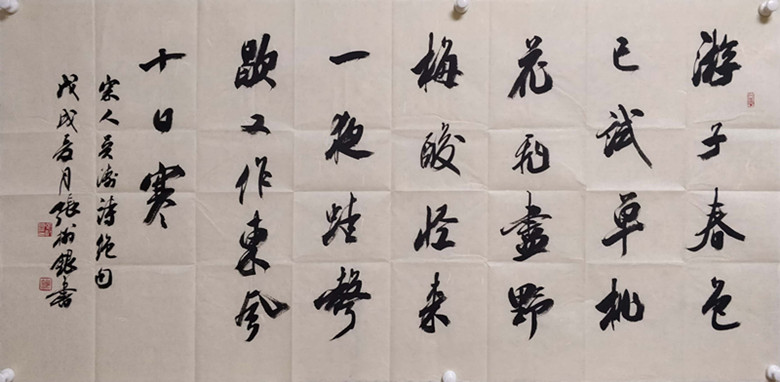 游子春色
已試单桃
花飛盡野
梅酸怪来
一夜蛙聲
歇又作東风
十日寒
宋人吴涛诗绝句
戊戌月張树银書